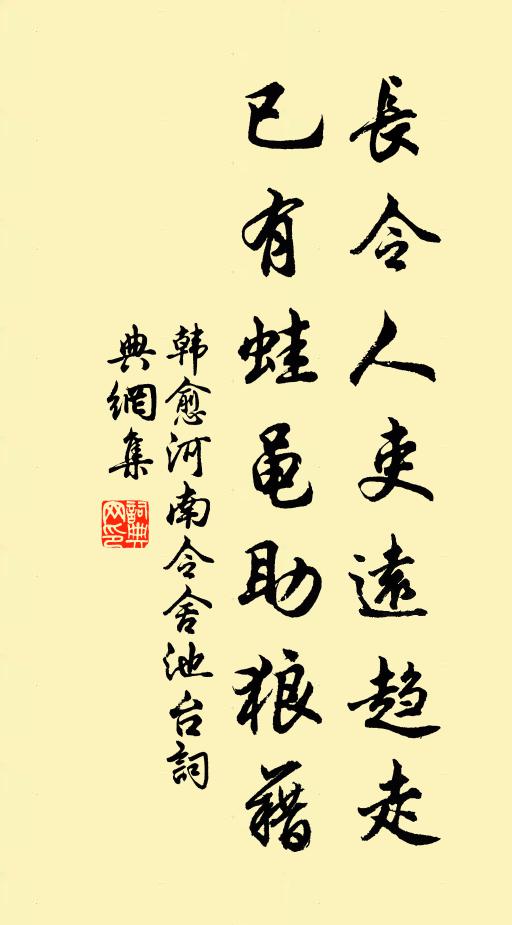 長令人吏遠趋走
已有蛙黽助狼藉
韩愈河南令舍池台詞
典網集
詞典网印